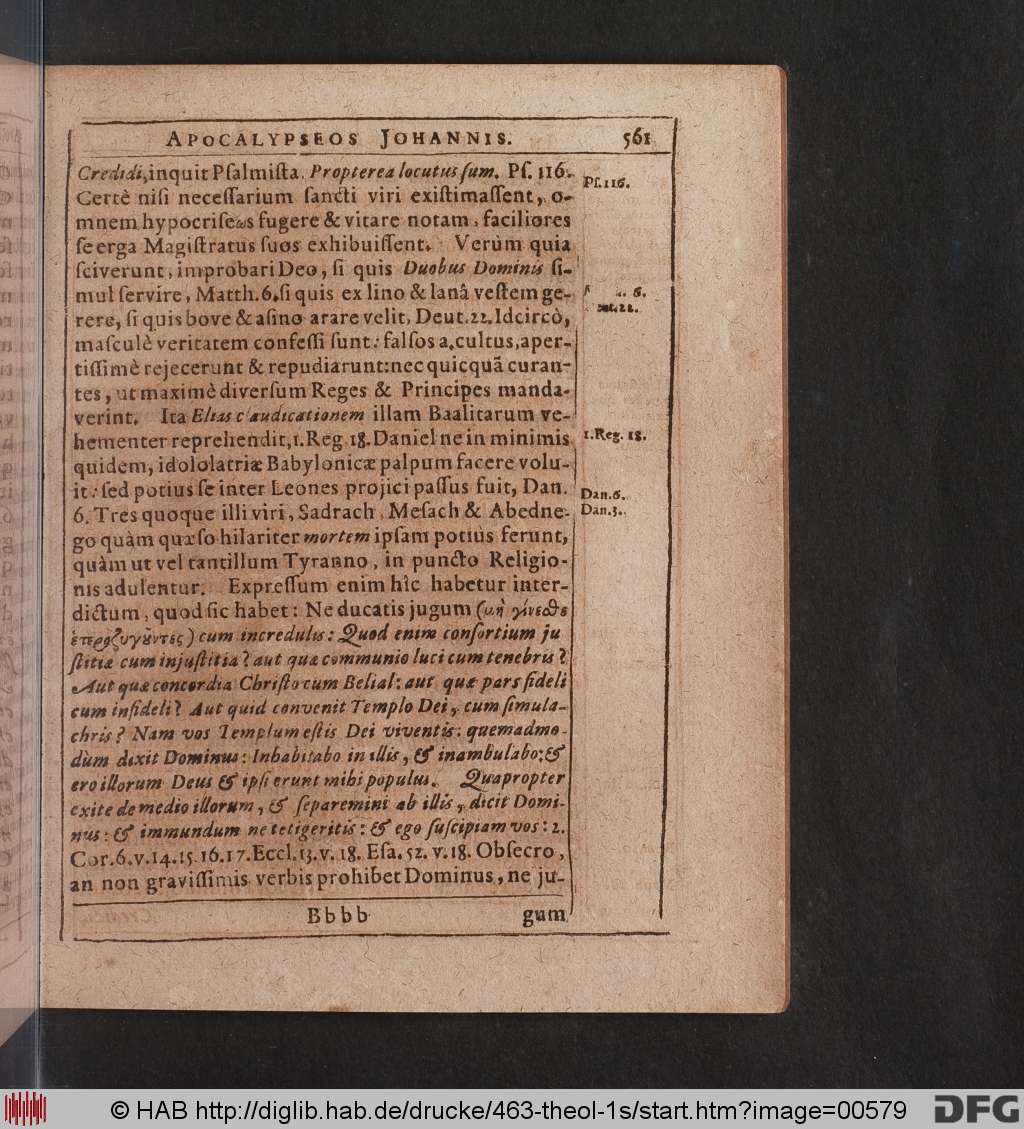 APOCALYPSEOS JOHANNIS. 561
Credidi, inquit Pſalmiſta. Propterea locutus ſum. Pſ. 116.
Certè niſi neceſſarium ſancti viri exiſtimaſſent, o-
mnem hypocriſeωs fugere & vitare notam, faciliores
ſe erga Magiſtratus ſuos exhibuiſſent. Verùm quia
ſciverunt, improbari Deo, ſi quis Duobus Dominis ſi-
mul ſervire, Matth. 6. ſi quis ex lino & lanâ veſtem ge-
rere, ſi quis bove & aſino arare velit, Deut. 22. Idcircò,
maſculè veritatem confeſſi ſunt: falſos a. cultus, aper-
tiſſimè rejecerunt & repudiarunt: nec quicquã curan-
tes, ut maximè diverſum Reges & Principes manda-
verint. Ita Elias claudicationem illam Baalitarum ve-
hementer reprehendit, 1. Reg. 18. Daniel ne in minimis
quidem, idololatriæ Babylonicæ palpum facere volu-
it: ſed potius ſe inter Leones projici paſſus fuit, Dan.
6. Tres quoque illi viri, Sadrach, Meſach & Abedne-
go quàm quæſo hilariter mortem ipſam potiùs ferunt,
quàm ut vel tantillum Tyranno, in puncto Religio-
nis adulentur. Expreſſum enim hîc habetur inter-
dictum, quod ſic habet: Ne ducatis jugum (μὴ γίνεσθε
ἑτεροζυγοῦντες) cum incredulis: Quod enim conſortium ju
ſtitiæ cum injuſtitia? aut quæ communio luci cum tenebris?
Aut quæ concordia Chriſto cum Belial: aut quæ pars fideli
cum infideli? Aut quid convenit Templo Dei, cum ſimula-
chris? Nam vos Templum eſtis Dei viventis: quemadmo-
dùm dixit Dominus: Inhabitabo in illis, & inambulabo: &
ero illorum Deus & ipſi erunt mihi populus. Quapropter
exite de medio illorum, & ſeparemini ab illis, dicit Domi-
nus: & immundum ne tetigeritis: & ego ſuſcipiam vos: 2.
Cor. 6. v. 14. 15. 16. 17. Eccl. 13. v. 18. Eſa. 52. v. 18. Obſecro,
an non graviſſimis verbis prohibet Dominus, ne ju-
Bbbb gum
Pſ. 116.
6.
22.
1. Reg. 18.
Dan. 6.
Dan. 3.
© HAB http://diglib.hab.de/drucke/463-theol-1s/start.htm?image=00579
DFG